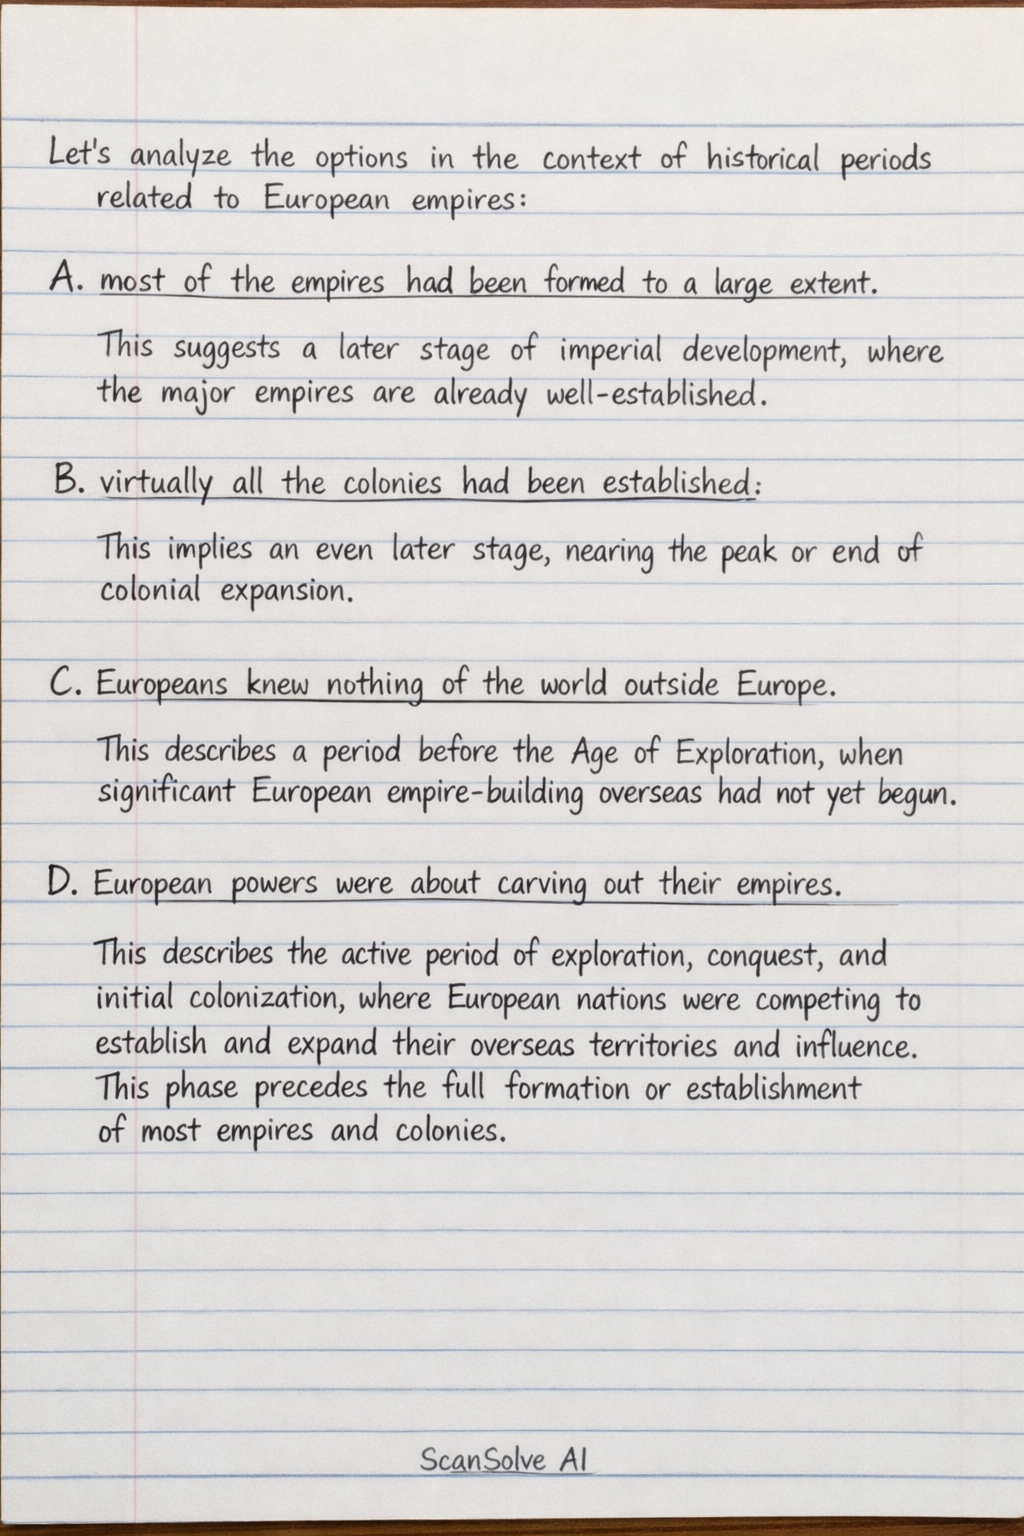 Let's analyze the options in the context of historical periods
related to European empires:
A. most of the empires had been formed to a large extent.
This suggests a later stage of imperial development, where
the major empires are already well-established.
B. virtually all the colonies had been established:
This implies an even later stage, nearing the peak or end of
colonial expansion.
C. Europeans knew nothing of the world outside Europe.
This describes a period before the Age of Exploration, when
significant European empire-building overseas had not yet begun.
D. European powers were about carving out their empires.
This describes the active period of exploration, conquest, and
initial colonization, where European nations were competing to
establish and expand their overseas territories and influence.
This phase precedes the full formation or establishment
of most empires and colonies.
ScanSolve AI